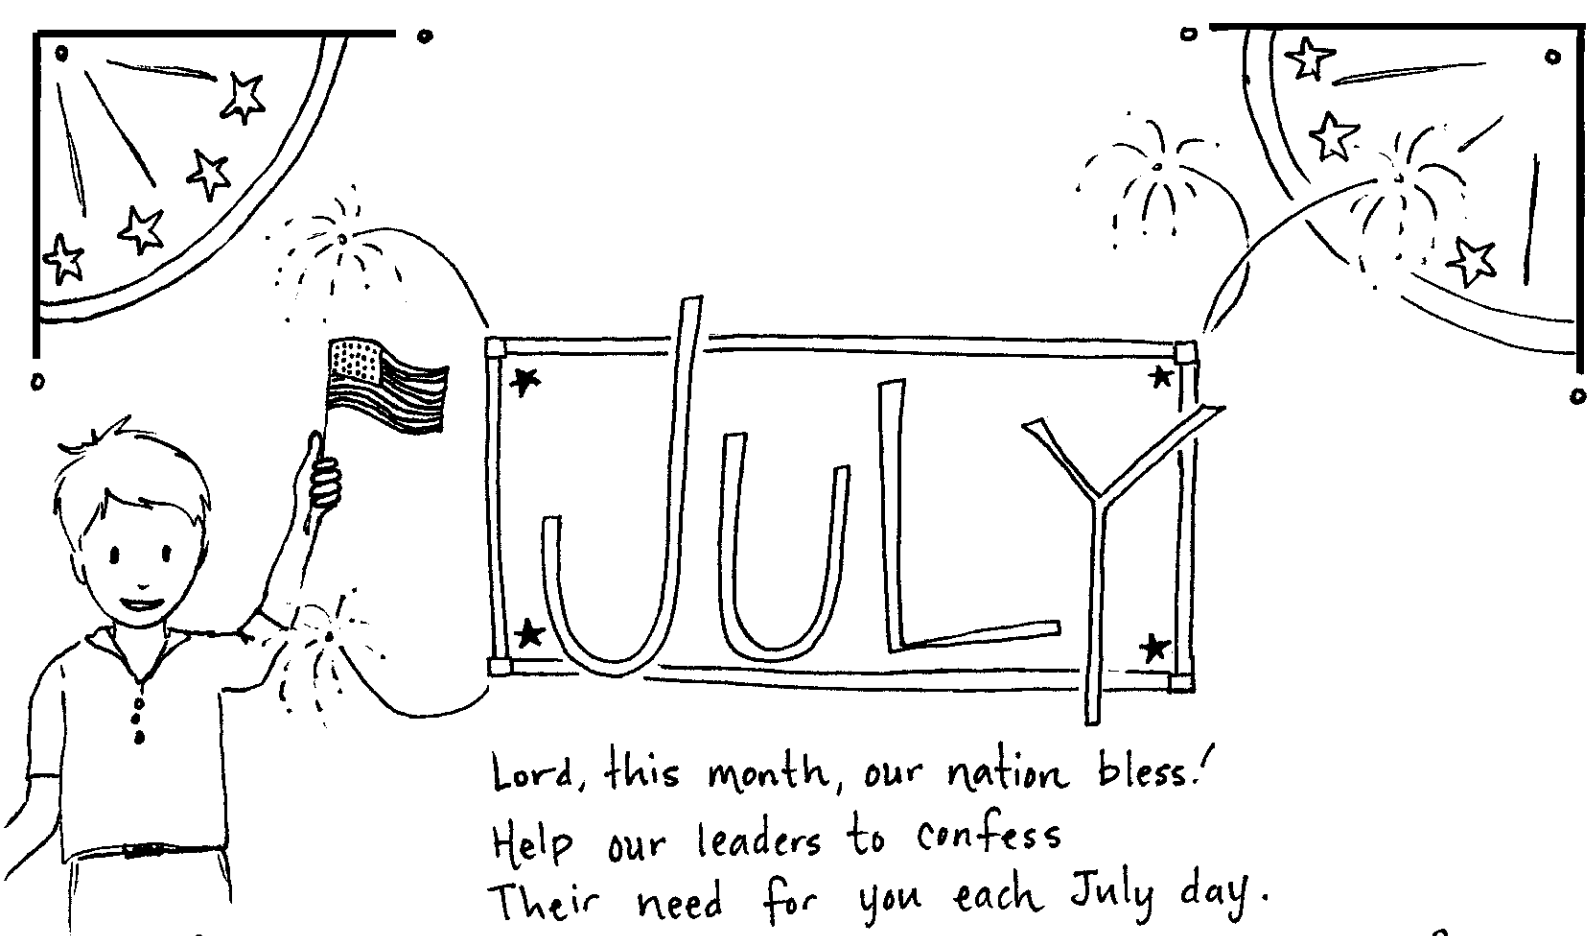 JULY
Lord, this month, our nation bless!
Help our leaders to confess
Their need for you each July day.